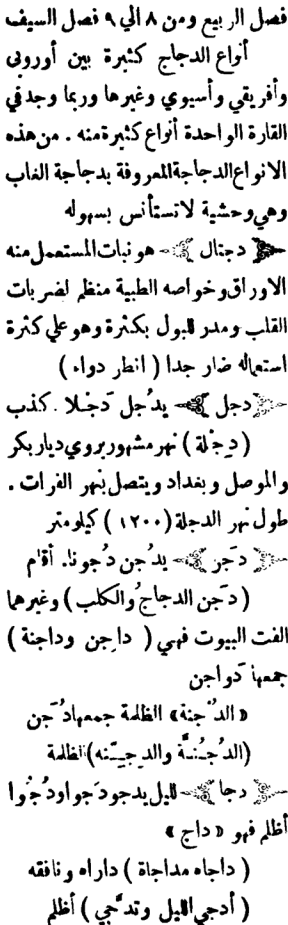 فصل الربيع ومن ٨ الي ٩ فصل السيف
أنواع الدجاج كثيرة بين أوروبي
وأفريقي وأسيوي وغيرها وربما وجد في
القارة الواحدة أنواع كثيرة منه . من هذه
الانواع الدجاجة المعروفة بدجاجة الغاب
وهي وحشية لا تستأنس بسهوله
دجتال هو نبات المستعمل منه
الاوراق وخواصه الطبية منظم لضربات
القلب ومدر للبول بكثرة وهو علي كثرة
استعماله ضار جدا ( انظر دواء )
دجل يدْجل دَجْلا . كذب
( دِجْلة ) نهر مشهور يروي ديار بكر
والموصل وبغداد ويتصل بنهر الفرات .
طول نهر الدجلة ( ١٢٠٠ ) كيلومتر
دَجن يدْجن دُجونا . أقام
( دَجن الدجاج والكلب ) وغيرهما
الفت البيوت فهي ( داجِن وداجنة )
جمعها دَواجن
« الدُجْنة » الظلمة جمعها دُجَن
( الدُجُنَّة والدِجِنّه ) الظلمة
دجا الليل يدجو دَجوا ودُجُوا
أظلم فهو « داج »
( داجاه مداجاة ) داراه ونافقه
( أدجي الليل وتدَجّي ) أظلم